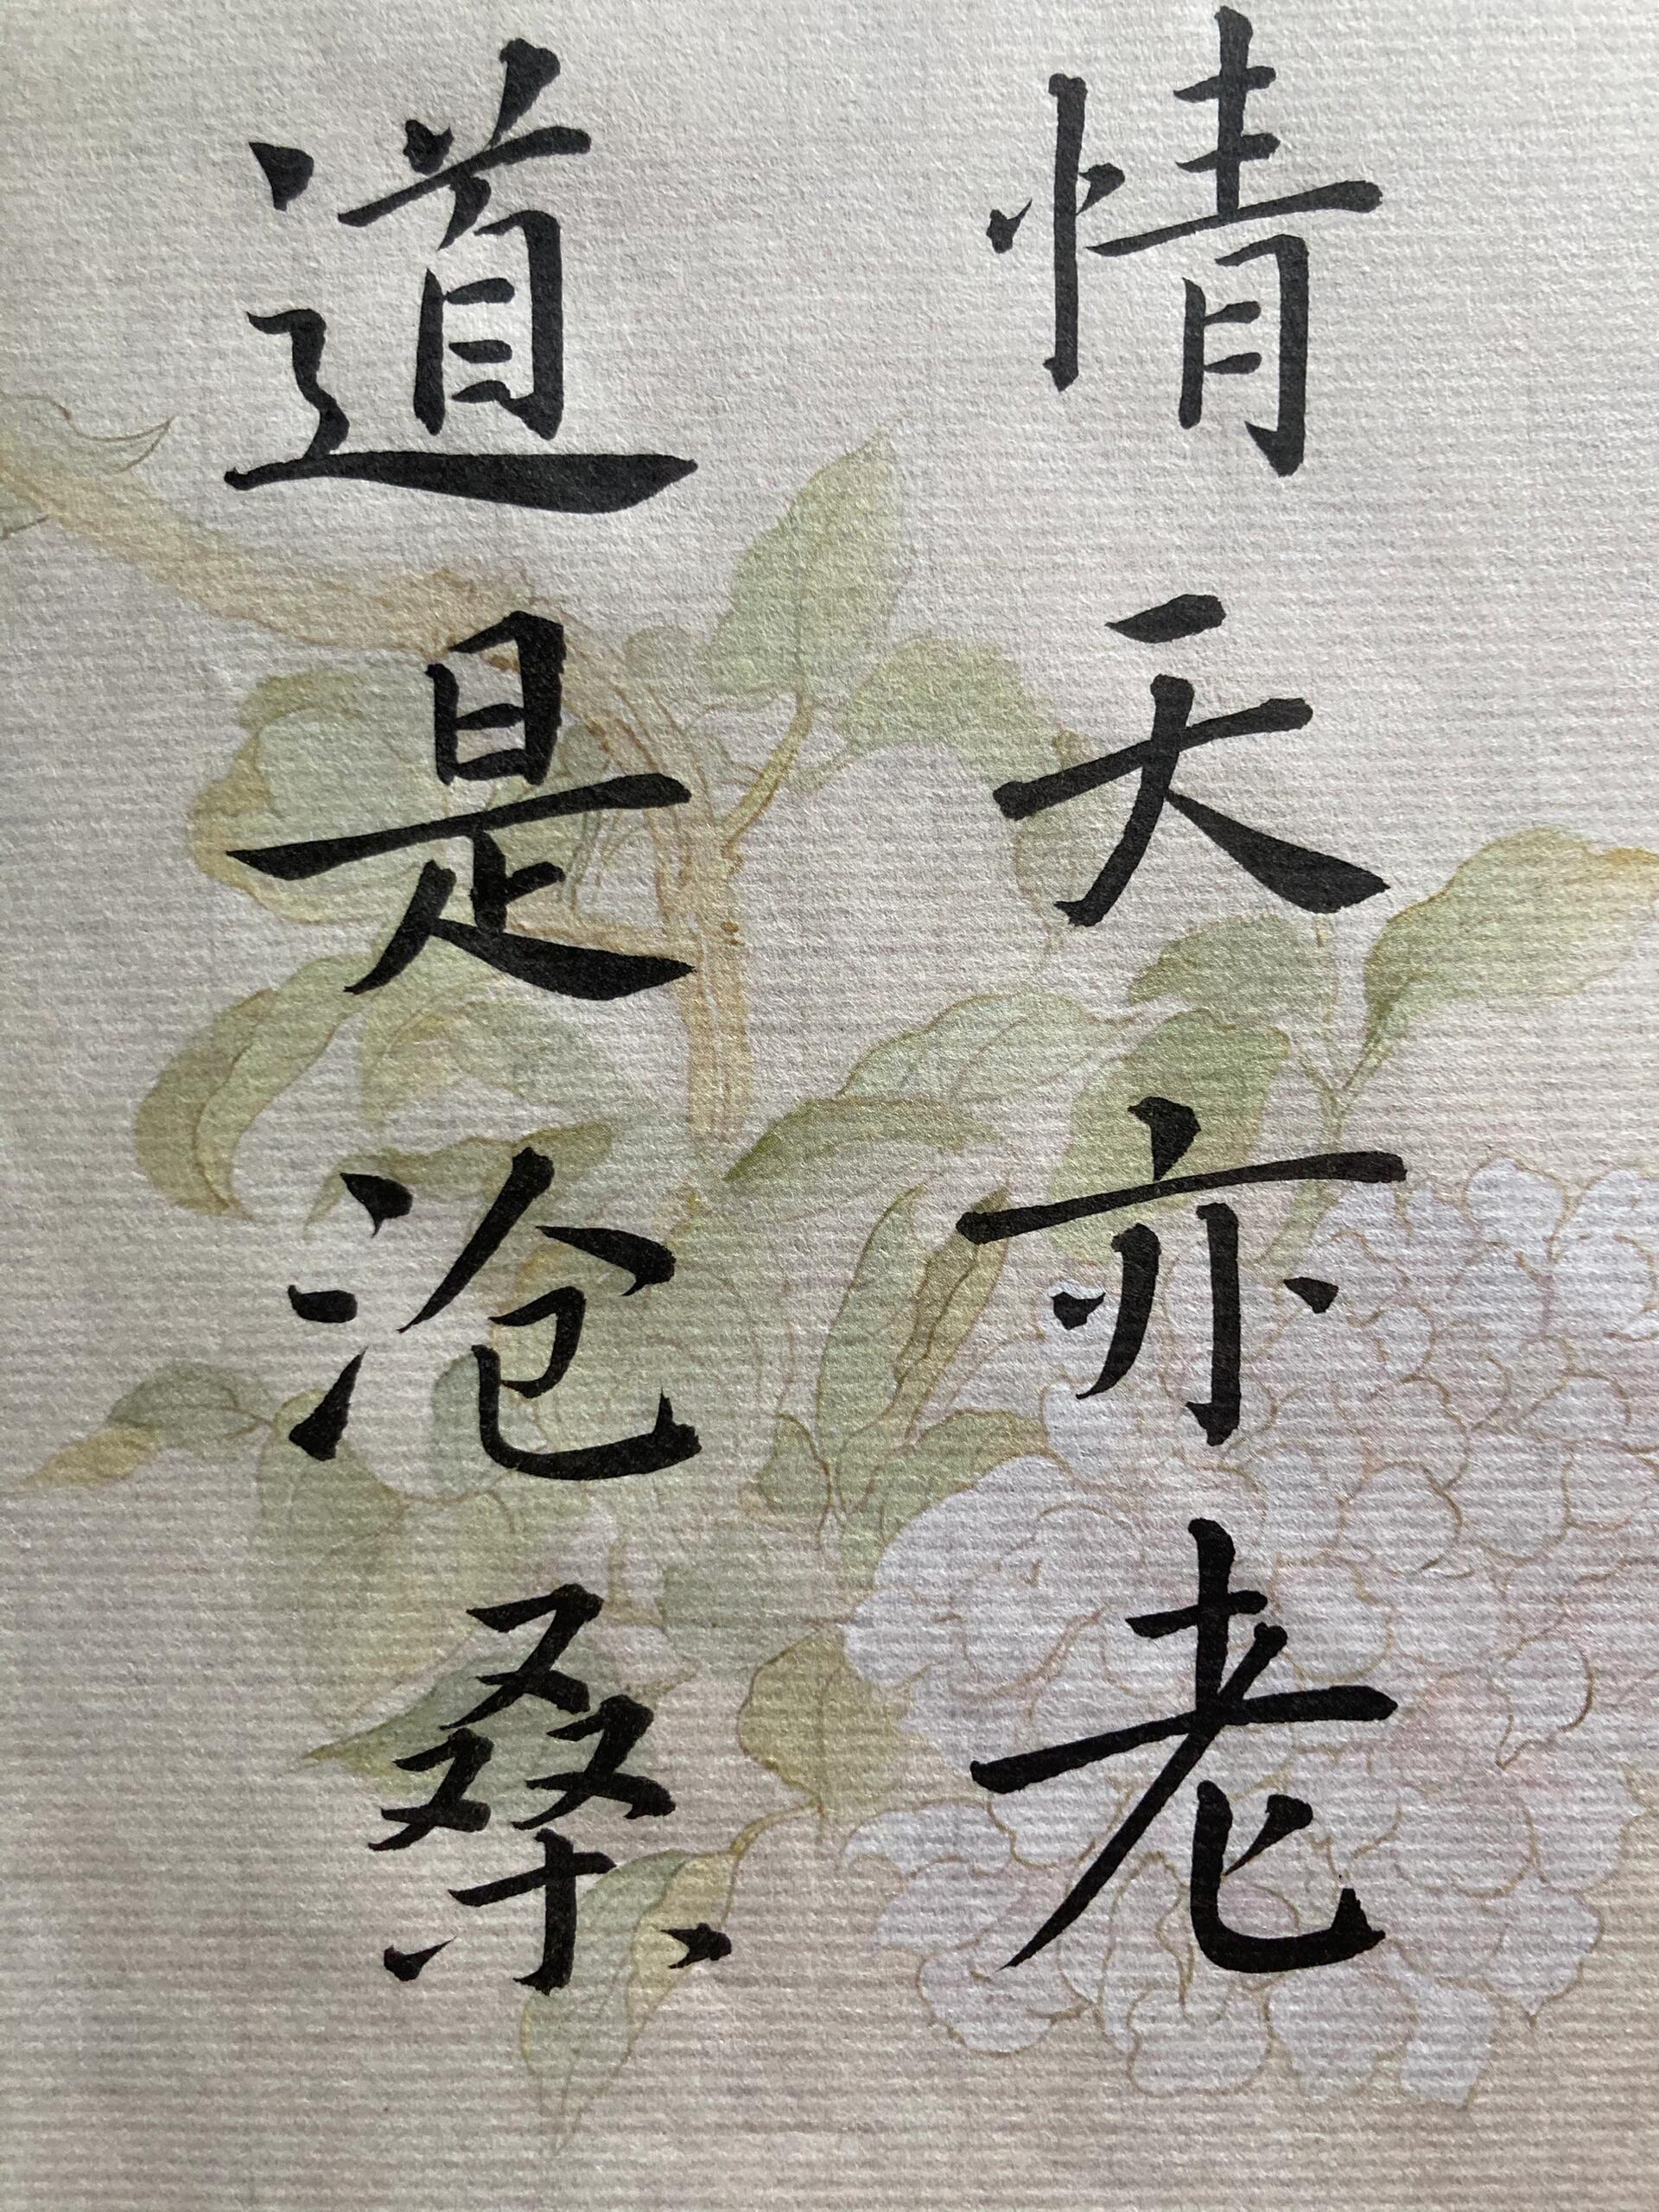 情天亦老
道是沧桑